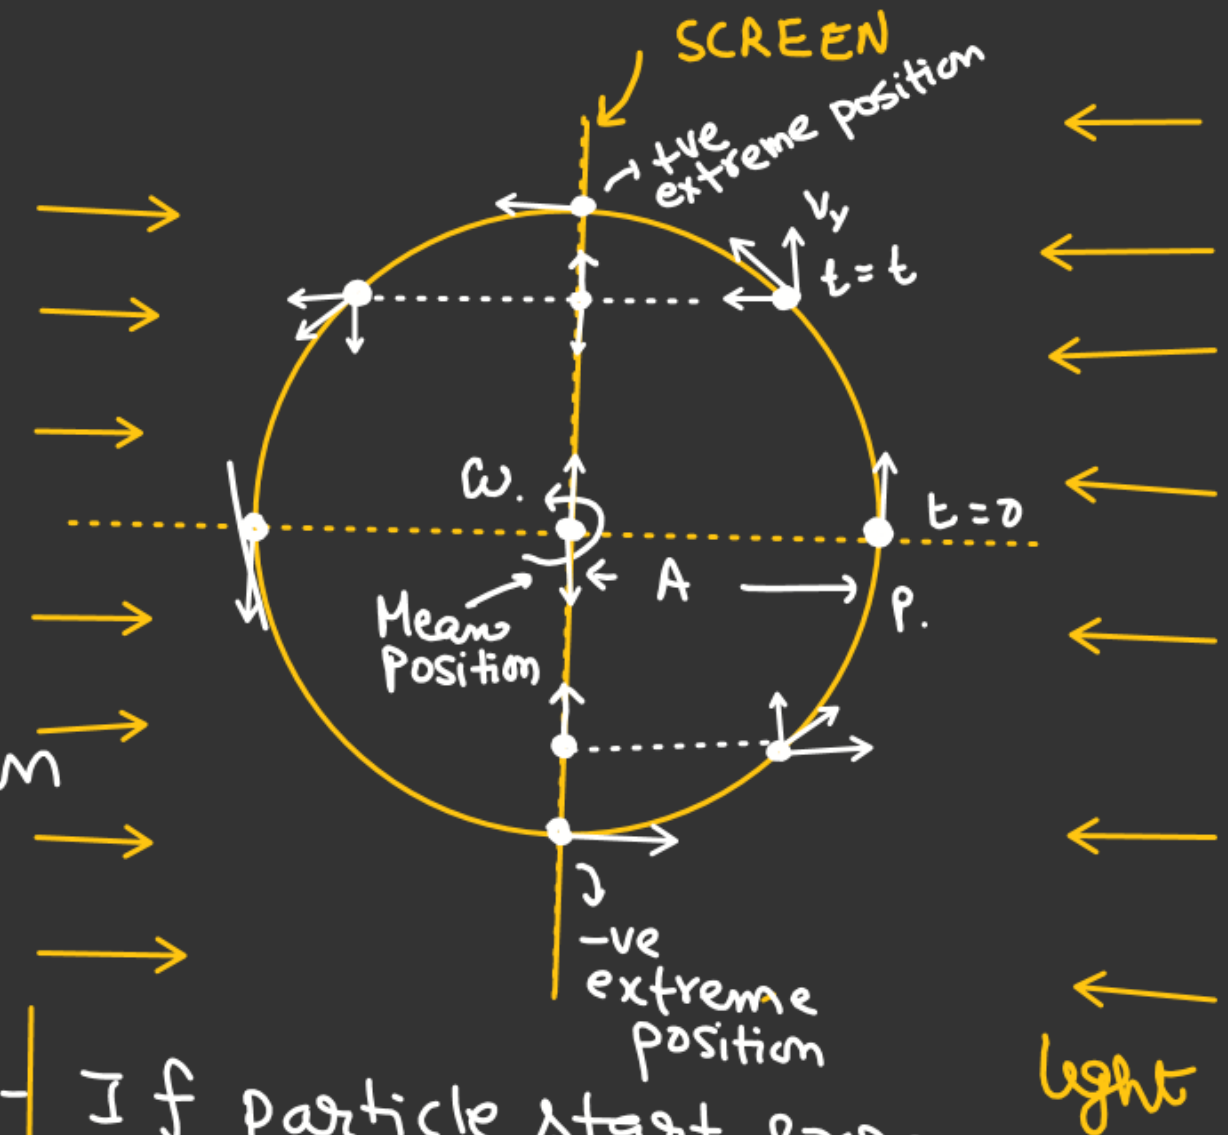 SCREEN
+ve
extreme position
Vy
t = t
ω.
t = 0
A
P.
Mean
Position
m
-ve
extreme
position
light
If particle start